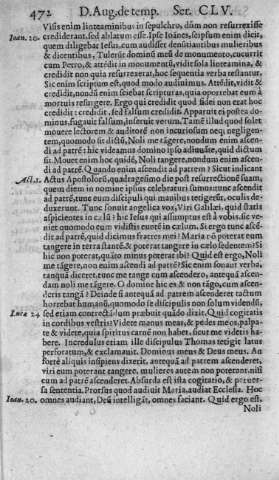 472 D. Aug. de temp. Ser. CLV.
Visis enim linteaminibus in sepulchro, dũm non resurrexisse
Ioan. 20. crediderant, sed ablatum esse. Ipse Ioānes, seipsum enim dicit,
quem diligebat Iesus, cum audisset dicentibus mulieribus
& dicentibus, Tulerūt dominū meū de monumento, cucurrit
cum Petro, & attēdit in monumentū, vidit sola linteamina, &
credidit non quia resurrexerat, hoc sequentia verba testantur.
Sic enim scriptum est, quod modo audiuimus. Attēdit, vidit &
credidit, nondū enim sciebat scripturas, quia oportebat eum à
mortuis resurgere. Ergo quid credidit quod fidei non erat hoc
credidit: credidit, sed falsum credidit. Apparuit ei postea do-
minus, fugauit falsum, inseruit verum. Tamē illud quod solet
mouere lectorem & auditorē non incuriosum neq; negligen-
tem, quomodo sit dictū, Noli me tāgere, nondum enim ascen-
di ad patrē: hic videamus domino ipso adiuuāte, quid dictum
sit. Mouet enim hoc quidē, Noli tangere, nondum enim ascen-
di ad patrē. Quando enim ascendit ad patrem? Sicut indicant
Act. 1. Actus Apostolorū, quadragesimo die post resurrectionē suam,
quem diem in nomine ipsius celebraturi sumus, tunc ascendit
ad patrē, tunc eum discipuli qui manibus tetigerūt, oculis de-
duxerunt. Tunc sonuit angelica vox, Viri Galilæi, quid statis
aspicientes in cælū? hic Iesus qui assumptus est à vobis, sic ve-
niet quomodo eum vidistis euntē in cælum. Si ergo tunc ascē-
dit ad patrē, quid dicimus fratres mei? Maria nō poterat eum
tangere in terra stantē, & poterat tangere in cælo sedentem? Si
hic non poterat, quāto minus poterat ibi? Quid est ergo, Noli
me tāgere, non enim ascendi ad patrē? Sic enim sonant verba,
tanquā diceret, tunc me tange cum ascendero, antequā ascen-
dam noli me tāgere. O domine hic es & non tāgo, cum ascen-
deris tangā? Deinde si antequā ad patrem ascenderet tactum
horrebat humanū, quomodo se discipulis non solum videndū,
Luca 24 sed etiam contrectādum præbuit quādo dixit. Quid cogitatis
in cordibus vestris? Videte manus meas, & pedes meos, palpa-
te & videte, quia spiritus carnē non habet, sicut me videtis ha-
bere. Incredulus etiam ille discipulus Thomas tetigit latus
perforatum, & exclamauit. Dominus meus & Deus meus. An
forte aliquis insipiens dixerit, antequā ad patrem ascenderet,
viri eum poterant tangere, mulieres autem non poterant, nisi
cum ad patrē ascenderet. Absurda est ista cogitatio, & peruer-
sa sententia. Prorsus quod audiuit Maria, audiat Ecclesia. Hoc
Ioan. 20. omnes audiant, Deū intelligāt, omnes faciant. Quid ergo est.
Noli